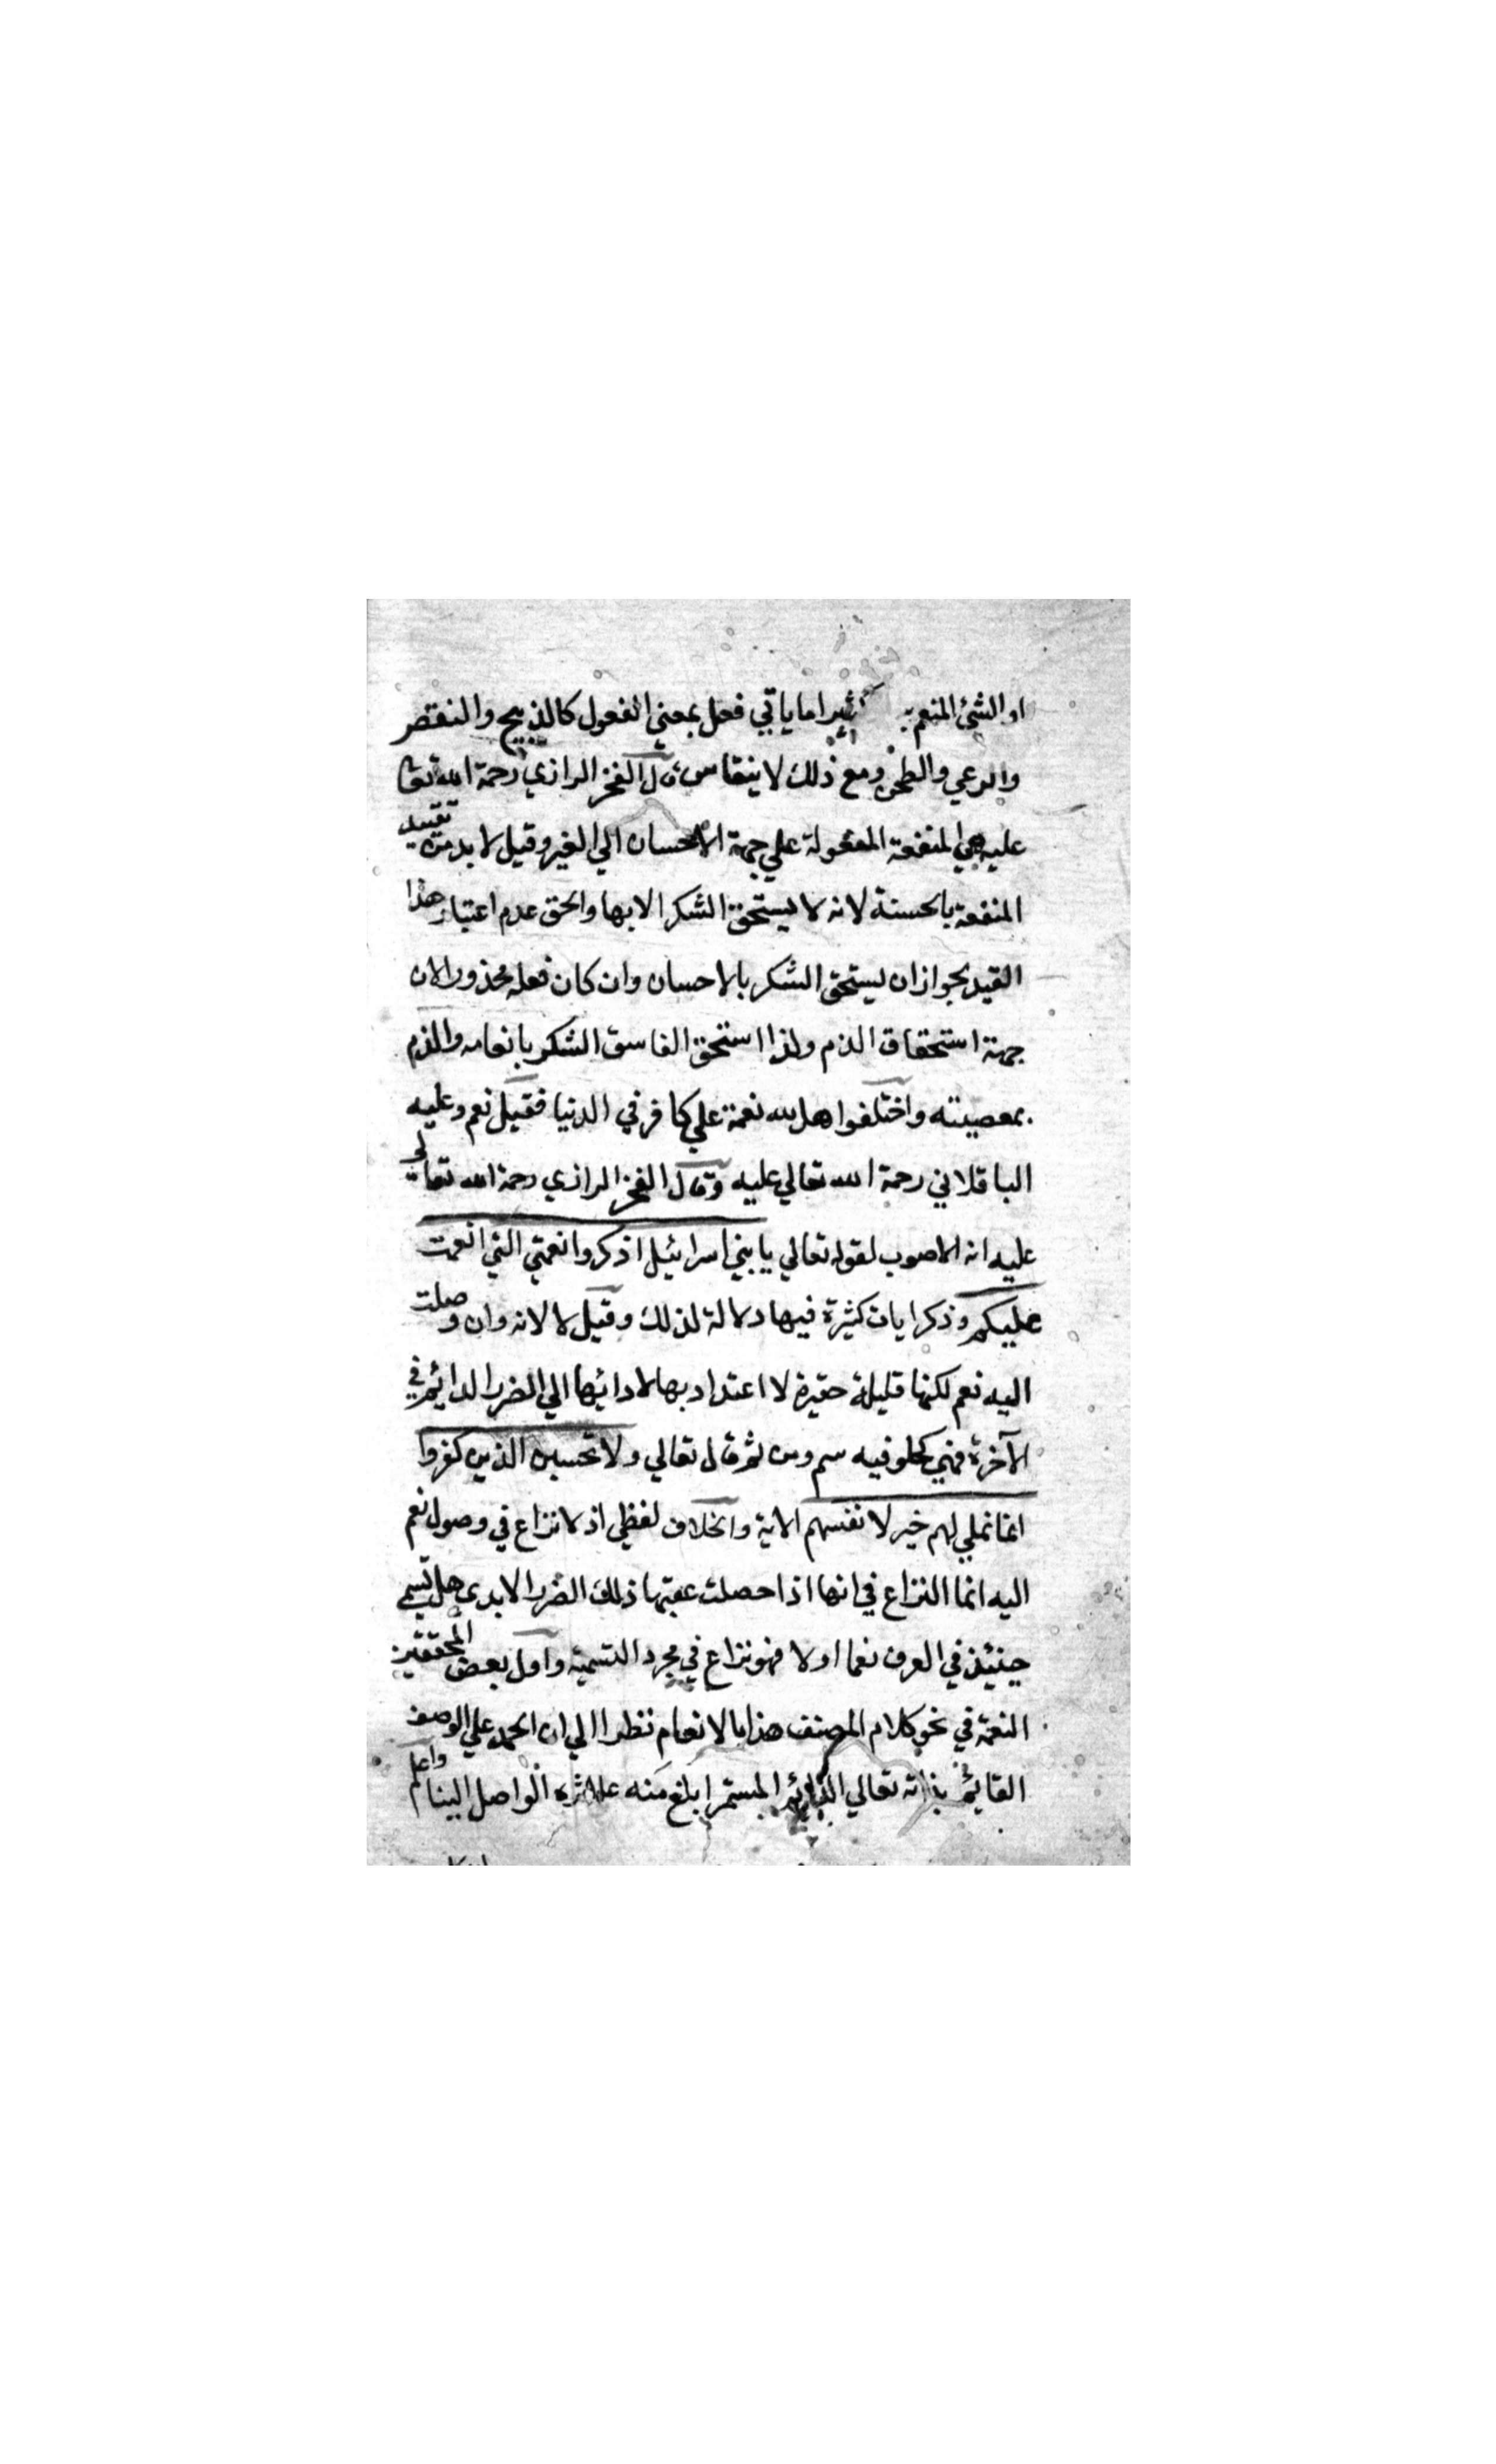 او الشئ المنعم به كثيرا ما ياتي فعل بمعني المفعول كالذبح والنقض
والرعي والطحن ومع ذلك لا ينقاس قال الفخر الرازي رحمة الله تعا
عليه هي المنفعة المفعولة علي جهة الاحسان الي الغير وقيل لا بد من تقييد
المنفعة بالحسنة لانه لا يستحق الشكر الا بها والحق عدم اعتبار هذا
القيد لجواز ان يستحق الشكر بالاحسان وان كان فعله محذورا لان
جهة استحقاق الذم ولذا استحق الفاسق الشكر بانعامه والذم
بمعصيته واختلفوا هل لله نعمة علي كافر في الدنيا فقيل نعم وعليه
الباقلاني رحمة الله تعالي عليه وقال الفخر الرازي رحمة الله تعالي
عليه انه الاصوب لقوله تعالي يا بني اسرائيل اذكروا نعمتي التي انعمت
عليكم وذكر ايات كثيرة فيها دلالة لذلك وقيل لا لانه وان وصلت
اليه نعم لكنها قليلة حقيرة لا اعتداد بها لادائها الي الضرر الدائم في
الآخرة فهي كحلو فيه سم ومن ثم قال تعالي ولا تحسبن الذين كفروا
انما نملي لهم خير لانفسهم الاية والخلاف لفظي اذ لا نزاع في وصول نعم
اليه انما النزاع في انها اذا حصلت عقبها ذلك الضرر الابدي هل تسمي
حينئذ في العرف نعما اولا فهو نزاع في مجرد التسمية واول بعض المحققين
النعمة في نحو كلام المصنف هذا بالانعام نظرا الي ان الحمد علي الوصف
القائم بذاته تعالي الدائم المستمر ابلغ منه علي اثره الواصل الينا واعلم